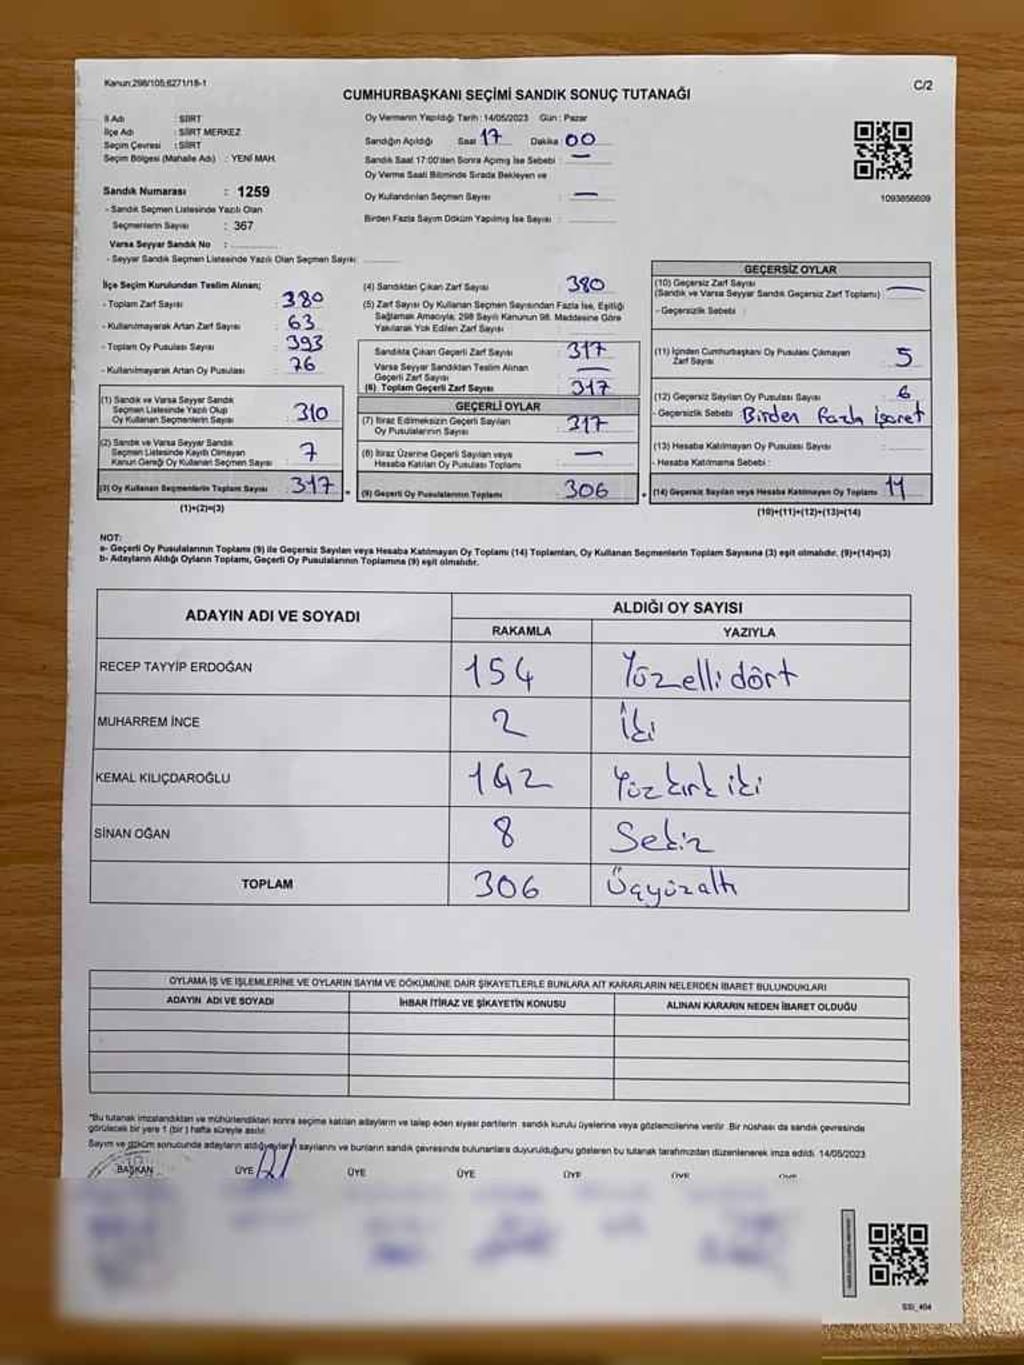 Kanun:298/105;6271/18-1
C/2
CUMHURBAŞKANI SEÇİMİ SANDIK SONUÇ TUTANAĞI
İl Adı : SİİRT
İlçe Adı : SİİRT MERKEZ
Seçim Çevresi : SİİRT
Seçim Bölgesi (Mahalle Adı) : YENİ MAH.
Sandık Numarası : 1259
- Sandık Seçmen Listesinde Yazılı Olan
Seçmenlerin Sayısı : 367
Varsa Seyyar Sandık No :
- Seyyar Sandık Seçmen Listesinde Yazılı Olan Seçmen Sayısı:
Oy Vermenin Yapıldığı Tarih : 14/05/2023 Gün : Pazar
Sandığın Açıldığı Saat 17 Dakika 00
Sandık Saat 17:00'den Sonra Açmış İse Sebebi : —
Oy Verme Saati Bitiminde Sırada Bekleyen ve
Oy Kullandırılan Seçmen Sayısı : —
Birden Fazla Sayım Döküm Yapılmış İse Sayısı :
1093856609
İlçe Seçim Kurulundan Teslim Alınan;
- Toplam Zarf Sayısı : 380
- Kullanılmayarak Artan Zarf Sayısı : 63
- Toplam Oy Pusulası Sayısı : 393
- Kullanılmayarak Artan Oy Pusulası : 76
(1) Sandık ve Varsa Seyyar Sandık
Seçmen Listesinde Yazılı Olup
Oy Kullanan Seçmenlerin Sayısı : 310
(2) Sandık ve Varsa Seyyar Sandık
Seçmen Listesinde Kayıtlı Olmayan
Kanun Gereği Oy Kullanan Seçmen Sayısı : 7
(3) Oy Kullanan Seçmenlerin Toplam Sayısı : 317
(1)+(2)=(3)
(4) Sandıktan Çıkan Zarf Sayısı : 380
(5) Zarf Sayısı Oy Kullanan Seçmen Sayısından Fazla İse, Eşitliği
Sağlamak Amacıyla; 298 Sayılı Kanunun 98. Maddesine Göre
Yakılarak Yok Edilen Zarf Sayısı :
Sandıkta Çıkan Geçerli Zarf Sayısı : 317
Varsa Seyyar Sandıktan Teslim Alınan
Geçerli Zarf Sayısı : —
(6) Toplam Geçerli Zarf Sayısı : 317
GEÇERLİ OYLAR
(7) İtiraz Edilmeksizin Geçerli Sayılan
Oy Pusulalarının Sayısı : 317
(8) İtiraz Üzerine Geçerli Sayılan veya
Hesaba Katılan Oy Pusulası Toplamı : —
(9) Geçerli Oy Pusulalarının Toplamı : 306
GEÇERSİZ OYLAR
(10) Geçersiz Zarf Sayısı
(Sandık ve Varsa Seyyar Sandık Geçersiz Zarf Toplamı) : —
- Geçersizlik Sebebi :
(11) İçinden Cumhurbaşkanı Oy Pusulası Çıkmayan
Zarf Sayısı : 5
(12) Geçersiz Sayılan Oy Pusulası Sayısı : 6
- Geçersizlik Sebebi : Birden Fazla işaret
(13) Hesaba Katılmayan Oy Pusulası Sayısı :
- Hesaba Katılmama Sebebi :
(14) Geçersiz Sayılan veya Hesaba Katılmayan Oy Toplamı : 11
(10)+(11)+(12)+(13)=(14)
NOT:
a- Geçerli Oy Pusulalarının Toplamı (9) ile Geçersiz Sayılan veya Hesaba Katılmayan Oy Toplamı (14) Toplamları, Oy Kullanan Seçmenlerin Toplam Sayısına (3) eşit olmalıdır. (9)+(14)=(3)
b- Adayların Aldığı Oyların Toplamı, Geçerli Oy Pusulalarının Toplamına (9) eşit olmalıdır.
ADAYIN ADI VE SOYADI
ALDIĞI OY SAYISI
RAKAMLA YAZIYLA
RECEP TAYYİP ERDOĞAN 154 Yüzelli dört
MUHARREM İNCE 2 İki
KEMAL KILIÇDAROĞLU 142 Yüz kırk iki
SİNAN OĞAN 8 Sekiz
TOPLAM 306 Üçyüzaltı
OYLAMA İŞ VE İŞLEMLERİNE VE OYLARIN SAYIM VE DÖKÜMÜNE DAİR ŞİKAYETLERLE BUNLARA AİT KARARLARIN NELERDEN İBARET BULUNDUKLARI
ADAYIN ADI VE SOYADI İHBAR İTİRAZ VE ŞİKAYETİN KONUSU ALINAN KARARIN NEDEN İBARET OLDUĞU
*Bu tutanak imzalandıktan ve mühürlendikten sonra seçime katılan adayların ve talep eden siyasi partilerin sandık kurulu üyelerine veya gözlemcilerine verilir. Bir nüshası da sandık çevresinde
görülecek bir yere 1 (bir) hafta süreyle asılır.
Sayım ve döküm sonucunda adayların aldığı oyların sayılarını ve bunların sandık çevresinde bulunanlara duyurulduğunu gösteren bu tutanak tarafımızdan düzenlenerek imza edildi. 14/05/2023
BAŞKAN ÜYE ÜYE ÜYE ÜYE ÜYE ÜYE